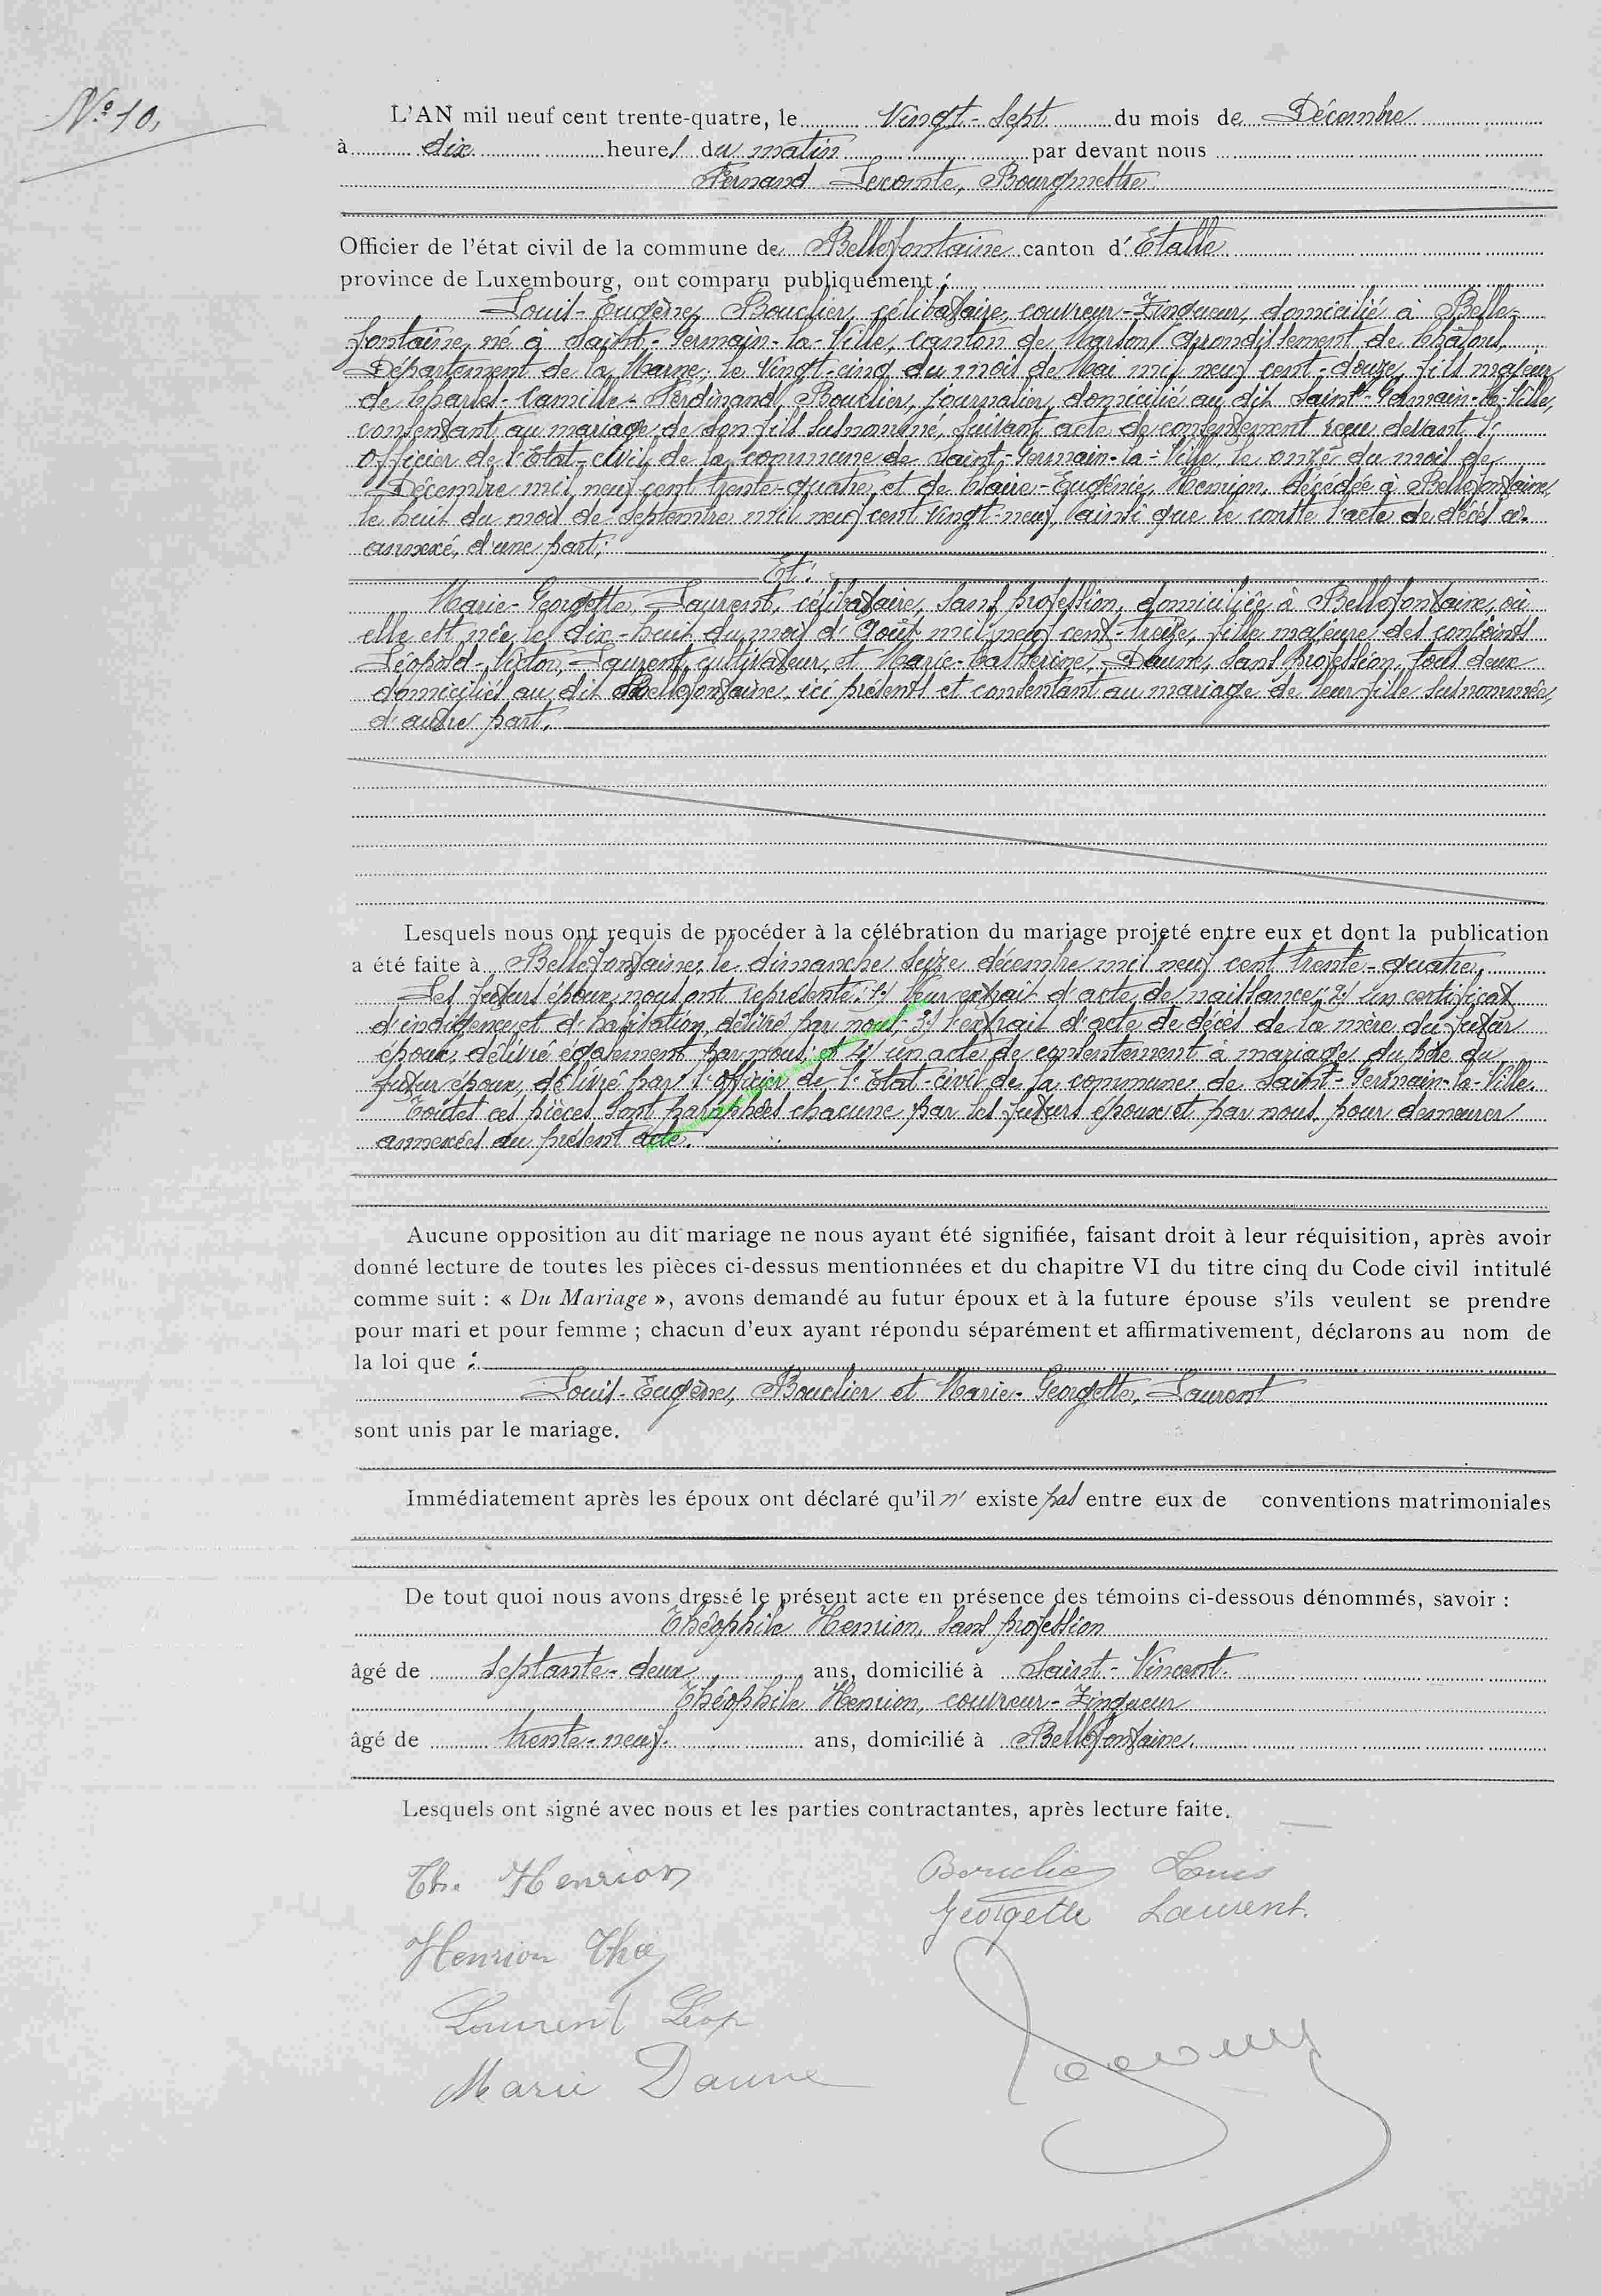 N° 10,
L'AN mil neuf cent trente-quatre, le Vingt-Sept du mois de Décembre
à dix heures du matin par devant nous
Fernand Lecomte, Bourgmestre
Officier de l'état civil de la commune de Bellefontaine canton d'Etalle
province de Luxembourg, ont comparu publiquement :
Louis-Eugène, Bouclier, célibataire, couvreur-Zingueur, domicilié à Belle-
fontaine, né à Saint-Germain-la-Ville, canton de Marson, Arrondissement de Châlons,
Département de la Marne, le Vingt-cinq du mois de Mai mil neuf cent-douze, fils majeur
de Charles-Camille-Ferdinand, Bouclier, journalier, domicilié au dit Saint-Germain-la-Ville,
consentant au mariage de son fils susnommé, suivant acte de consentement reçu devant l'
Officier de l'Etat-civil de la commune de Saint-Germain-la-Ville, le onze du mois de
Décembre mil neuf cent trente-quatre, et de Claire-Eugénie, Henrion, décédée à Bellefontaine,
le huit du mois de Septembre mil neuf cent Vingt-neuf, ainsi que le conste l'acte de décès ci-
annexé, d'une part;
Et:
Marie-Georgette, Laurent, célibataire, sans profession, domiciliée à Bellefontaine, où
elle est née, le dix-huit du mois d'Août mil neuf cent-treize, fille majeure des conjoints
Léopold-Victor, Laurent, cultivateur, et Marie-Catherine, Daune, sans profession, tous deux
domiciliés au dit Bellefontaine, ici présents et consentant au mariage de leur fille susnommée,
d'autre part.
Lesquels nous ont requis de procéder à la célébration du mariage projeté entre eux et dont la publication
a été faite à Bellefontaine, le dimanche seize décembre mil neuf cent trente-quatre.
Les futurs époux nous ont représenté: 1) leur extrait d'acte de naissance; 2) un certificat
d'indigence et d'habitation, délivré par nous; 3) l'extrait d'acte de décès de la mère du futur
époux, délivré également par nous; et 4) un acte de consentement à mariage du père du
futur époux, délivré par l'officier de l'Etat-civil de la commune de Saint-Germain-la-Ville.
Toutes ces pièces sont paraphées chacune par les futurs époux et par nous pour demeurer
annexées au présent acte.
Aucune opposition au dit mariage ne nous ayant été signifiée, faisant droit à leur réquisition, après avoir
donné lecture de toutes les pièces ci-dessus mentionnées et du chapitre VI du titre cinq du Code civil intitulé
comme suit : « Du Mariage », avons demandé au futur époux et à la future épouse s'ils veulent se prendre
pour mari et pour femme ; chacun d'eux ayant répondu séparément et affirmativement, déclarons au nom de
la loi que :
Louis-Eugène, Bouclier et Marie-Georgette, Laurent
sont unis par le mariage.
Immédiatement après les époux ont déclaré qu'il n' existe pas entre eux de conventions matrimoniales
De tout quoi nous avons dressé le présent acte en présence des témoins ci-dessous dénommés, savoir :
Théophile Henrion, sans profession
âgé de septante-deux ans, domicilié à Saint-Vincent.
Théophile Henrion, couvreur-Zingueur
âgé de trente-neuf ans, domicilié à Bellefontaine.
Lesquels ont signé avec nous et les parties contractantes, après lecture faite.
Th. Henrion Bouclier Louis
Georgette Laurent.
Henrion Thé
Laurent Léop
Marie Daune